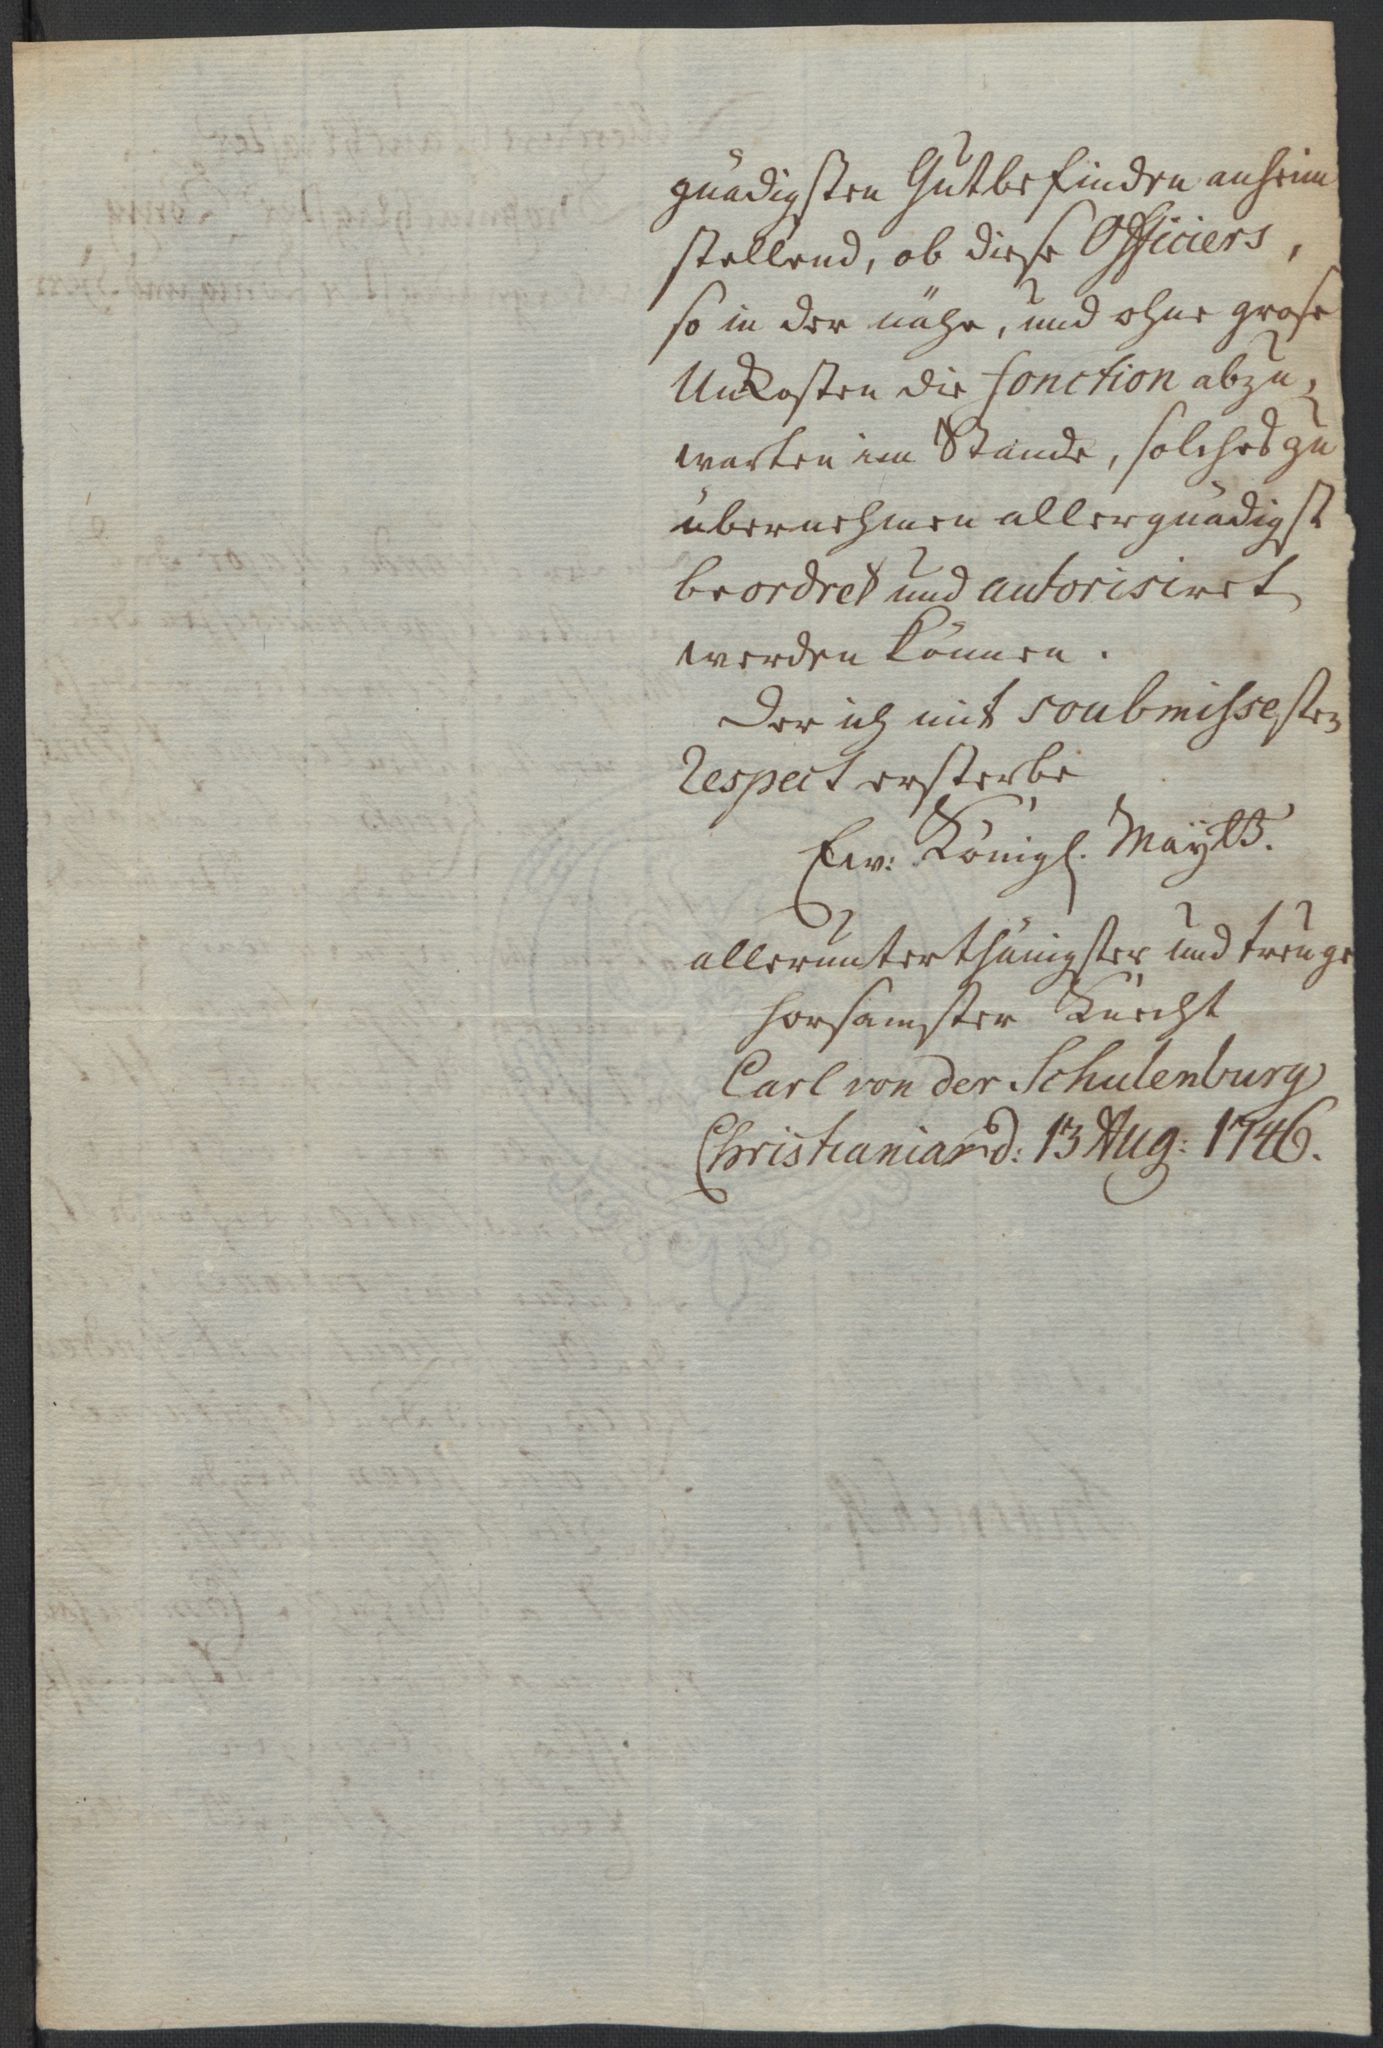 gnädigsten Gutbefinden anheim
stellend, ob diese Officiers,
so in der nähe, und ohne grose
Unkosten die fonction abzu,
warten im Stande, solches zu
übernehmen allergnädigst
beordret und autorisiret
werden können.
Der ich mit soubmissesten
Respect ersterbe
Ew: Königl. Mayttt.
allerunterthänigster und treuge
horsamster Knecht
Carl von der Schulenburg
Christiania d: 13 Aug: 1746.